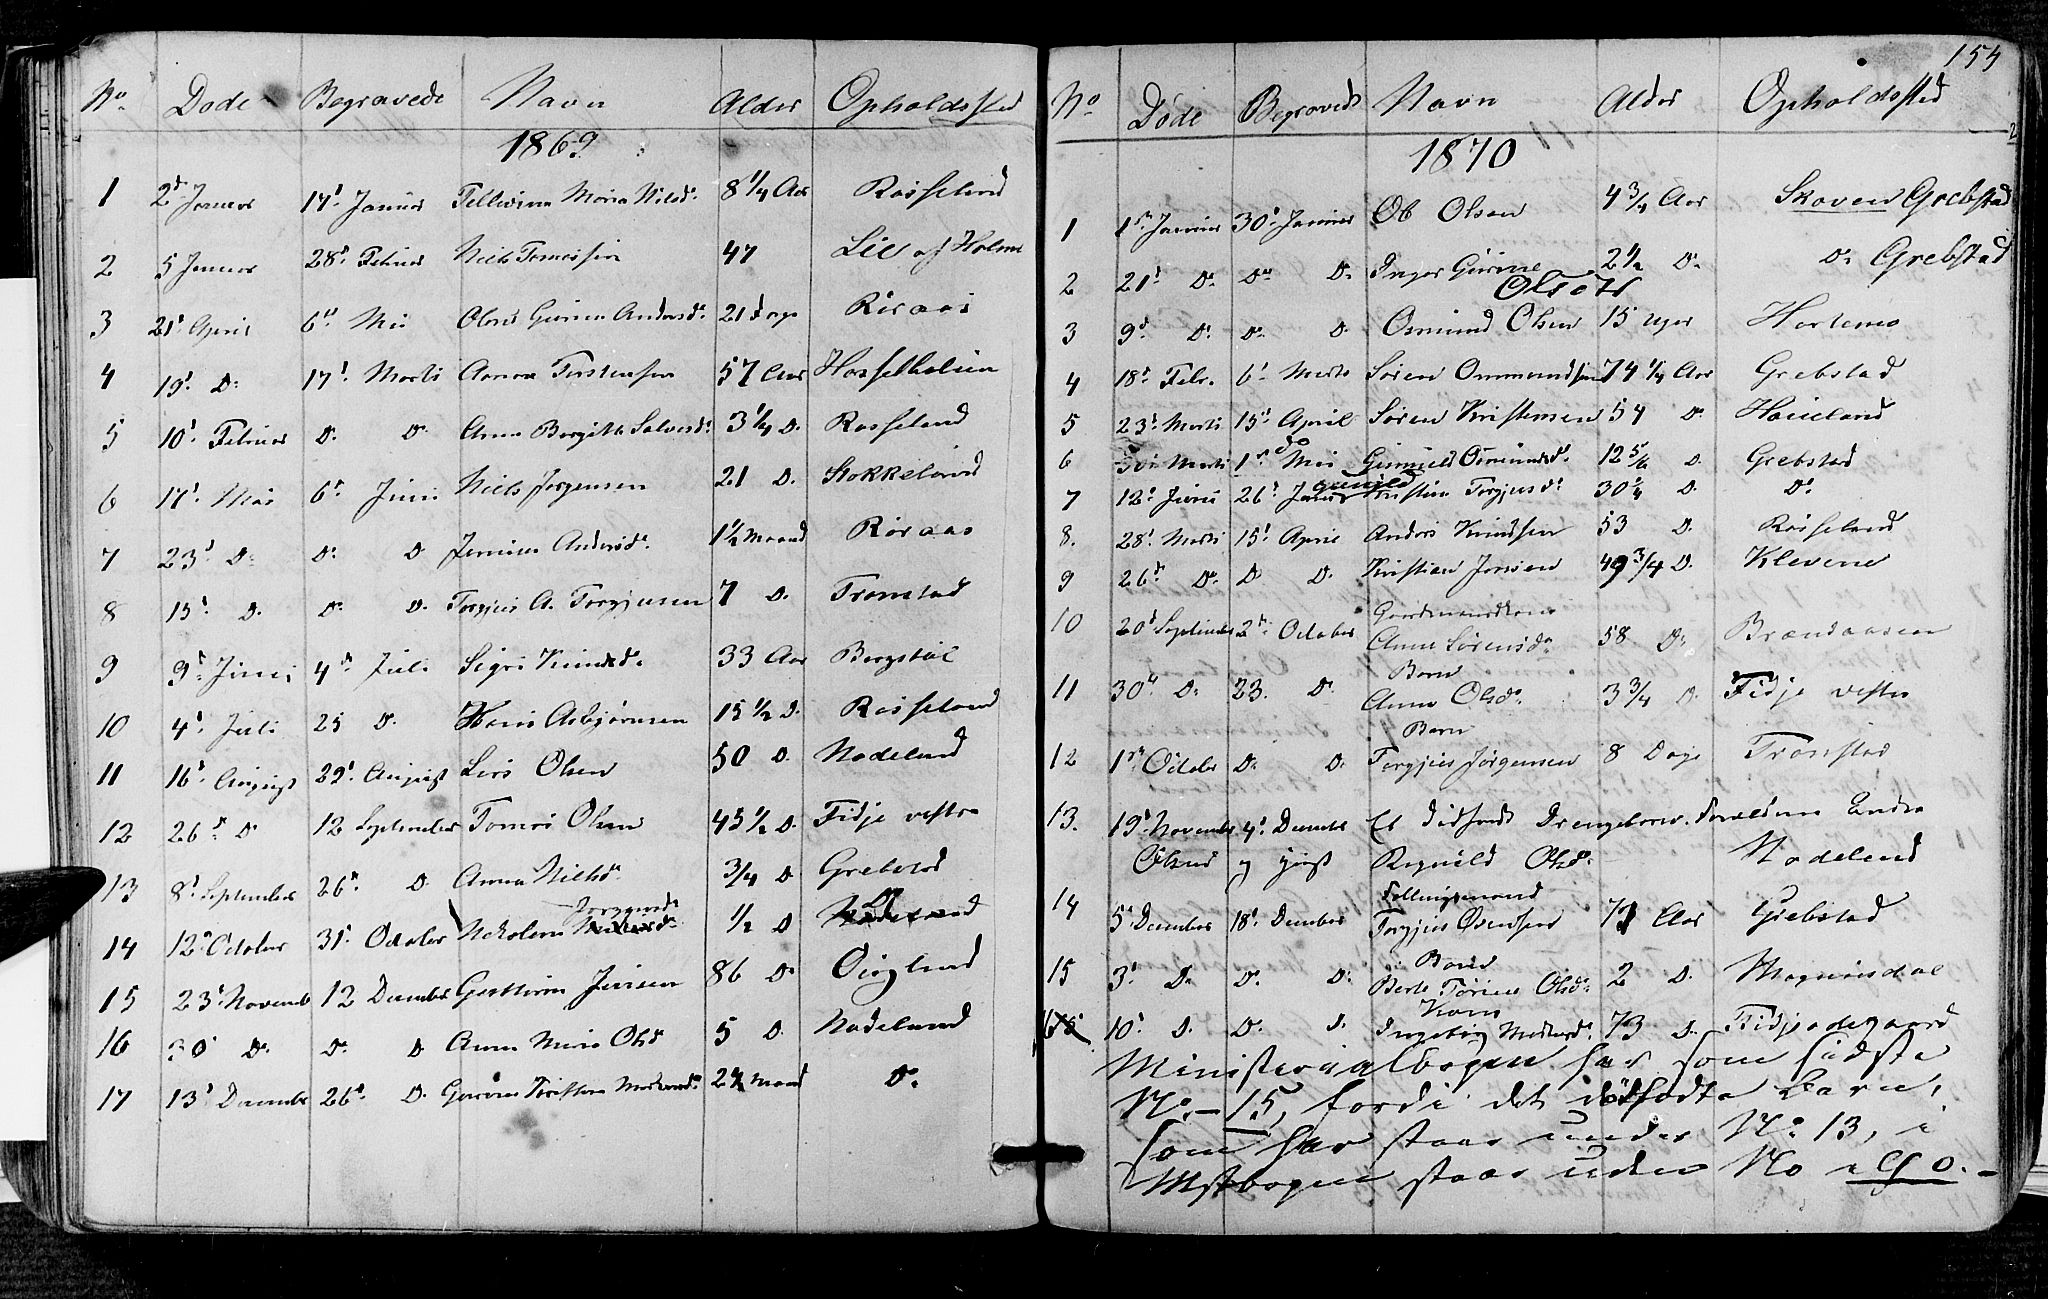 No. Døde Begravede Navn Alder Opholdssted
1869
1 2d Januar 17d Januar Tellevine Maria Nilsd. 8 1/4 Aar Rosseland
2 5 Januar 28d Februar Niels Tomassen 47 Lie af Holme
3 21d April 6te Mai Gurine Andersd. 21 Dage Røraas
4 19d Do. 17d Marts Anna Torstensen 57 Aar Hasselbakken
5 10d Februar Do. Do. Anne Birgitte Salvesd. 3 1/4 D. Rosseland
6 17d Mai 6te Juni Niels Jørgensen 21 D. Stokkeland
7 23d D. D. D. Andersd. 1 1/2 Maaned Røraas
8 15d D. D. D. Torgjus A. Torgjusen 7 D. Tronstad
9 9d Juni 4d Juli Sigri Knudsd. 33 Aar Bergstøl
10 4d Juli 25 D. Hans Asbjørnsen 15 1/2 D. Rosseland
11 16d August 29d August Lars Olsen 50 D. Nodeland
12 26d D. 12 September Tomas Olsen 45 1/2 D. Fidje vestre
13 8d September 26d D. Anna Nilsd. 3/4 D. Grebstad
14 12d October 31d October Nekoline Jørgensd. 1/2 D. Do.
15 23d Novemb 12 December Jensen 86 D. Øigland
16 30 D. D. D. Anne Marie Olsd 5 D. Nodeland
17 13d December 26d D. Gurine 2 1/2 Maaned Do.
154
No. Døde Begravede Navn Alder Opholdssted
1870
1 1ste Januar 30d Januar Ole Olsen 4 3/4 Aar Skoven Grebstad
2 21d D. D. D. Inger Gurine Olsdtr 2 1/2 D. D. Grebstad
3 9d D. D. D. Osmund Olsen 15 Uger Hortemo
4 18d Febr. 6d Marts Søren Ommundsen 74 1/4 Aar Grebstad
5 23d Marts 15d April Søren Kristensen 54 D. Høieland
6 Marts 1ste Mai Gunnild Osmundsd. 12 5/6 D. Grebstad
7 12d Juni 26d Juni Gunild Torgjusd. 30 3/4 D. Do.
8. 28d Marts 15d April Anders Knudsen 53 D. Rosseland
9 26d D. D. D. Kristian Jensen 49 3/4 D. Klevene
10 20d September 2den October Gaardmandskone
Anne Sørensd. 58 D. Brændaasen
11 30te D. 23. D. Barn
Anne Olsd. 3 3/4 D. Fidje vestre
12 1ste October D. D. Barn
Torgjus Jørgensen 8 Dage Tronstad
13. 19d November 4d December Et dødfødt Drengebarn. Forældrene Endre
Olsen og Regnild Olsd. Nodeland
14 5d December 18d December Fellingsmand
Torgjus 73 Aar Grebstad
15 3d D. D. D. Barn
Berte Torine Olsd. 2 D. Magnusdal
10d D. D. D. Kone
Ingebor 73 D. Fidjeødegaard
Ministerialbogen har som sidste
No.- 15, fordi det dødfødte Barn,
som her staar under No. 13, i
Mstbogen staar uden No.